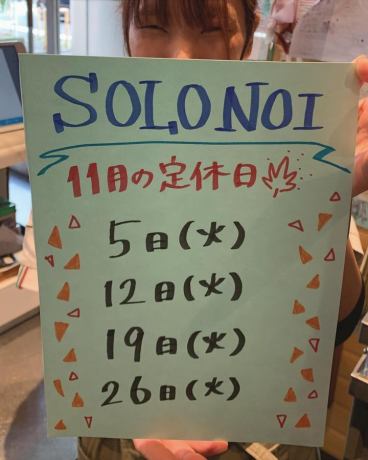 SOLO NOI
11月の定休日
5日(火)
12日(火)
19日(火)
26日(火)